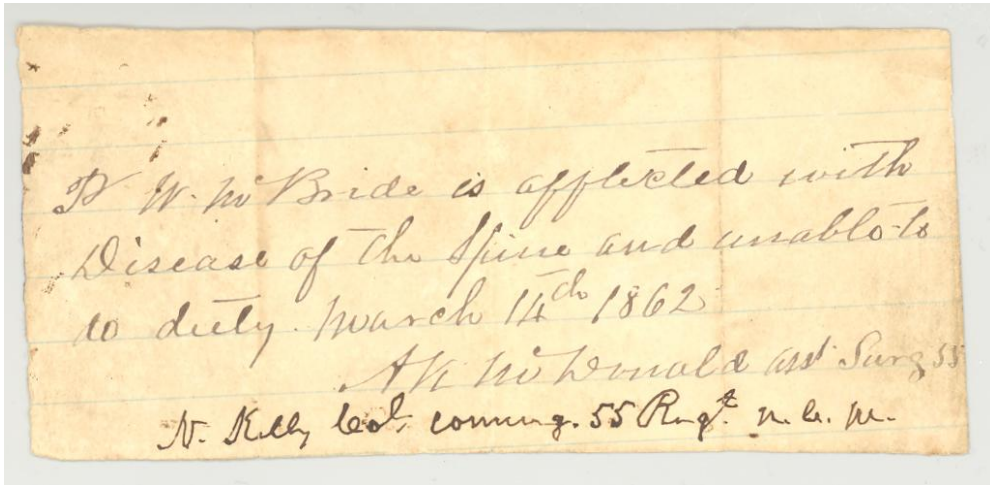 W. McBride is afflicted with
Disease of the Spine and unable to
to duty. March 14th 1862
McDonald asst Surg 55
N. Kelly Col. coming. 55 Regt. N. C. M.